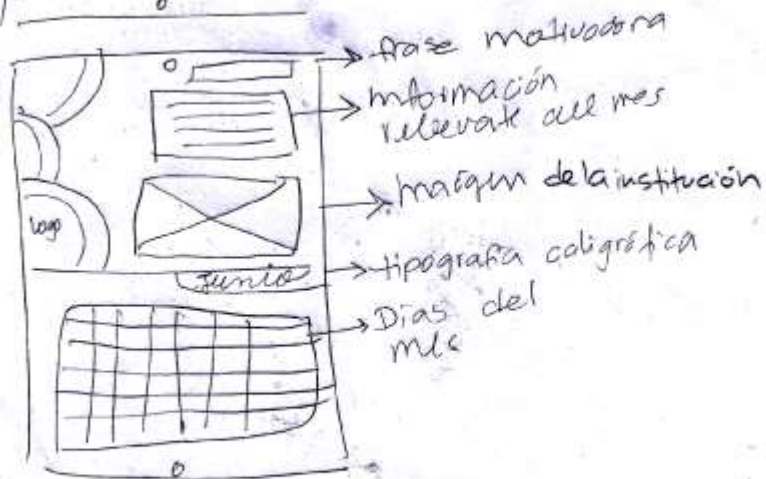 frase motivadora
información
relevate del mes
margen de la institución
logo
tipografia caligráfica
Junio
Dias del
mes